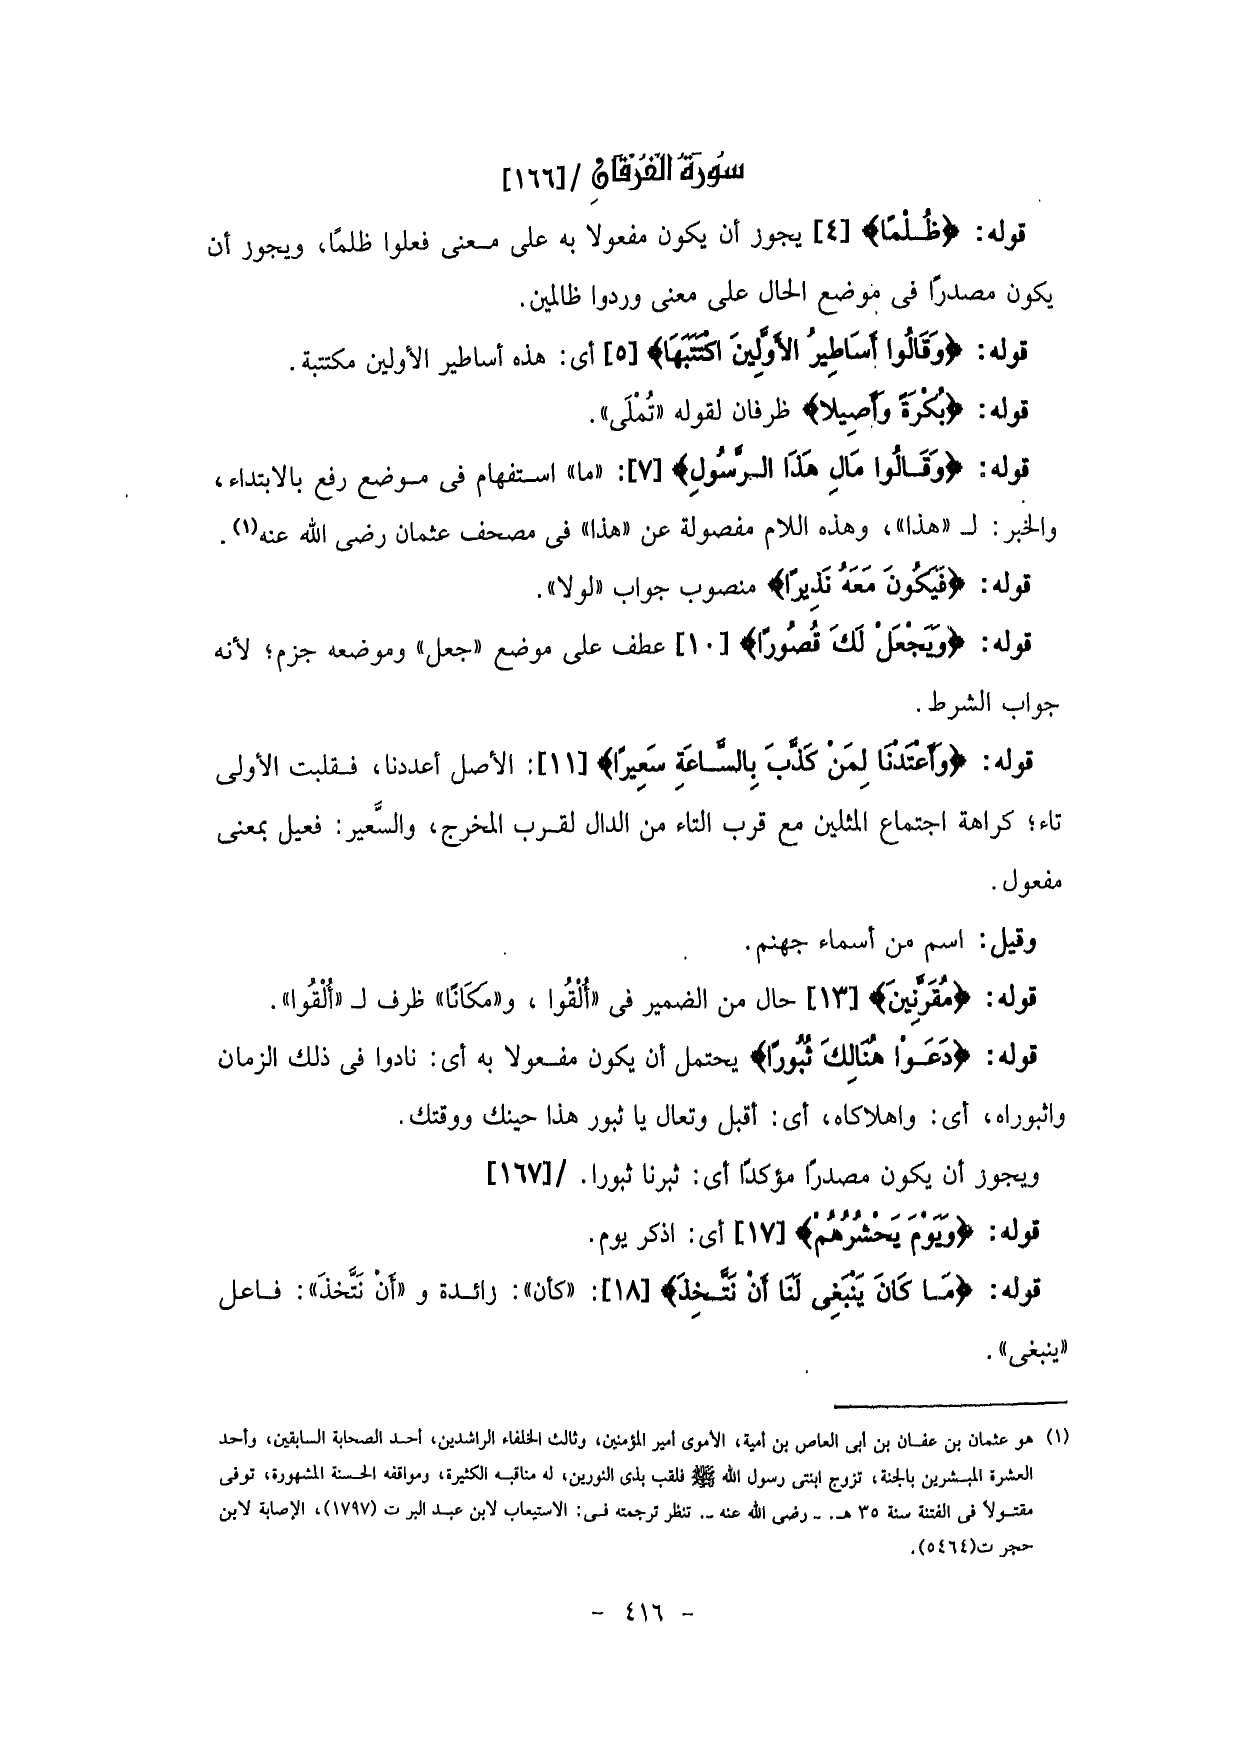 سُورَةُ الْفُرْقَانِ /[١٦٦]
قوله: ﴿ظُلْمًا﴾ [٤] يجوز أن يكون مفعولا به على معنى فعلوا ظلمًا، ويجوز أن
يكون مصدرًا فى موضع الحال على معنى وردوا ظالمين.
قوله: ﴿وَقَالُوا أَسَاطِيرُ الأَوَّلِينَ اكْتَتَبَهَا﴾ [٥] أى: هذه أساطير الأولين مكتتبة.
قوله: ﴿بُكْرَةً وَأَصِيلا﴾ ظرفان لقوله «تُمْلَى».
قوله: ﴿وَقَالُوا مَالِ هَذَا الرَّسُولِ﴾ [٧]: «ما» استفهام فى موضع رفع بالابتداء،
والخبر: لـ «هذا»، وهذه اللام مفصولة عن «هذا» فى مصحف عثمان رضى الله عنه(١).
قوله: ﴿فَيَكُونَ مَعَهُ نَذِيرًا﴾ منصوب جواب «لولا».
قوله: ﴿وَيَجْعَلْ لَكَ قُصُورًا﴾ [١٠] عطف على موضع «جعل» وموضعه جزم؛ لأنه
جواب الشرط.
قوله: ﴿وَأَعْتَدْنَا لِمَنْ كَذَّبَ بِالسَّاعَةِ سَعِيرًا﴾ [١١]: الأصل أعددنا، فقلبت الأولى
تاء؛ كراهة اجتماع المثلين مع قرب التاء من الدال لقرب المخرج، والسَّعير: فعيل بمعنى
مفعول.
وقيل: اسم من أسماء جهنم.
قوله: ﴿مُقَرَّنِينَ﴾ [١٣] حال من الضمير فى «أُلْقُوا ، و«مكَانًا» ظرف لـ «أُلْقُوا».
قوله: ﴿دَعَوْا هُنَالِكَ ثُبُورًا﴾ يحتمل أن يكون مفعولا به أى: نادوا فى ذلك الزمان
واثبوراه، أى: واهلاكاه، أى: أقبل وتعال يا ثبور هذا حينك ووقتك.
ويجوز أن يكون مصدرًا مؤكدًا أى: ثبرنا ثبورا. /[١٦٧]
قوله: ﴿وَيَوْمَ يَحْشُرُهُمْ﴾ [١٧] أى: اذكر يوم.
قوله: ﴿مَا كَانَ يَنْبَغِى لَنَا أَنْ نَتَّخِذَ﴾ [١٨]: «كأن»: زائدة و «أَنْ نَتَّخذَ»: فاعل
«ينبغى».
(١) هو عثمان بن عفان بن أبى العاص بن أمية، الأموى أمير المؤمنين، وثالث الخلفاء الراشدين، أحد الصحابة السابقين، وأحد
العشرة المبشرين بالجنة، تزوج ابنتى رسول الله ﷺ فلقب بذى النورين، له مناقبه الكثيرة، ومواقفه الحسنة المشهورة، توفى
مقتولاً فى الفتنة سنة ٣٥ هـ. ـ رضى الله عنه ـ. تنظر ترجمته فى: الاستيعاب لابن عبد البر ت (١٧٩٧)، الإصابة لابن
حجر ت(٥٤٦٤).
- ٤١٦ -